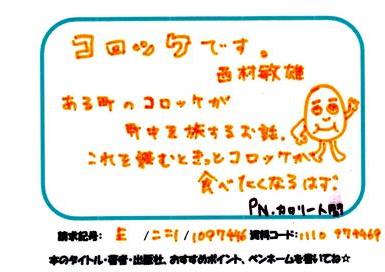 コロッケです。
西村敏雄
ある町のコロッケが
町中を旅するお話。
これを読むときっとコロッケが
食べたくなるはず。
PN.カロリー人間
請求記号: E /ニシ/ 1097446 資料コード:1110 974469
本のタイトル・著者・出版社、おすすめポイント、ペンネームを書いてね☆